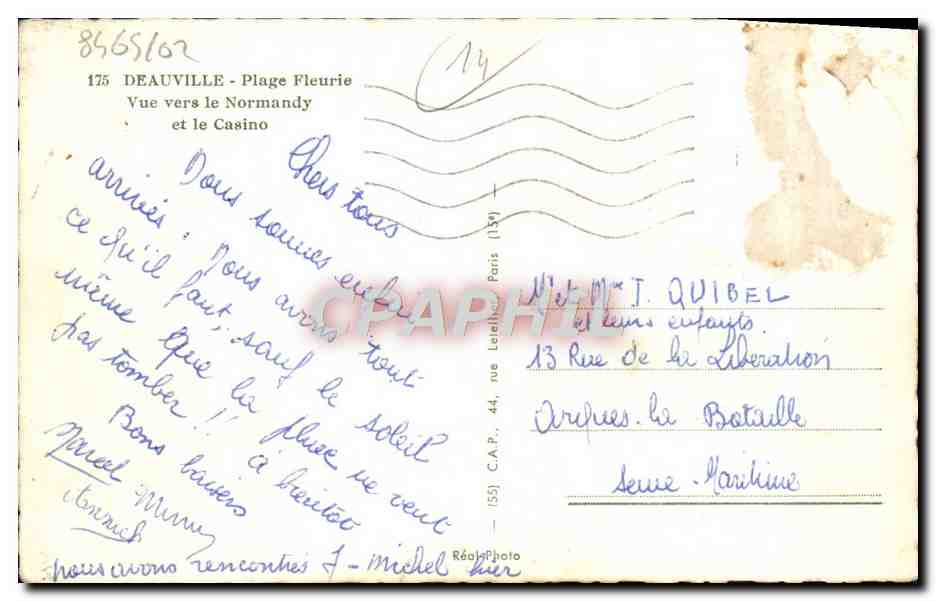 8465/02
14
175 DEAUVILLE - Plage Fleurie
Vue vers le Normandy
et le Casino
Chers tous
Nous sommes enfin
arrivés. Nous avons tout
ce qu'il faut, sauf le soleil
même que la pluie ne veut
pas tomber !! à bientôt
Bons baisers
Marcel
Annick
nous avons rencontrés J-Michel hier
— (55) C.A.P., 44, rue Lelellier, Paris (15e) —
Réal-Photo
Mr et Mme J. QUIBEL
et leurs enfants.
13 Rue de la Libération
Arques-la Bataille
Seine-Maritime
CPAPHIL